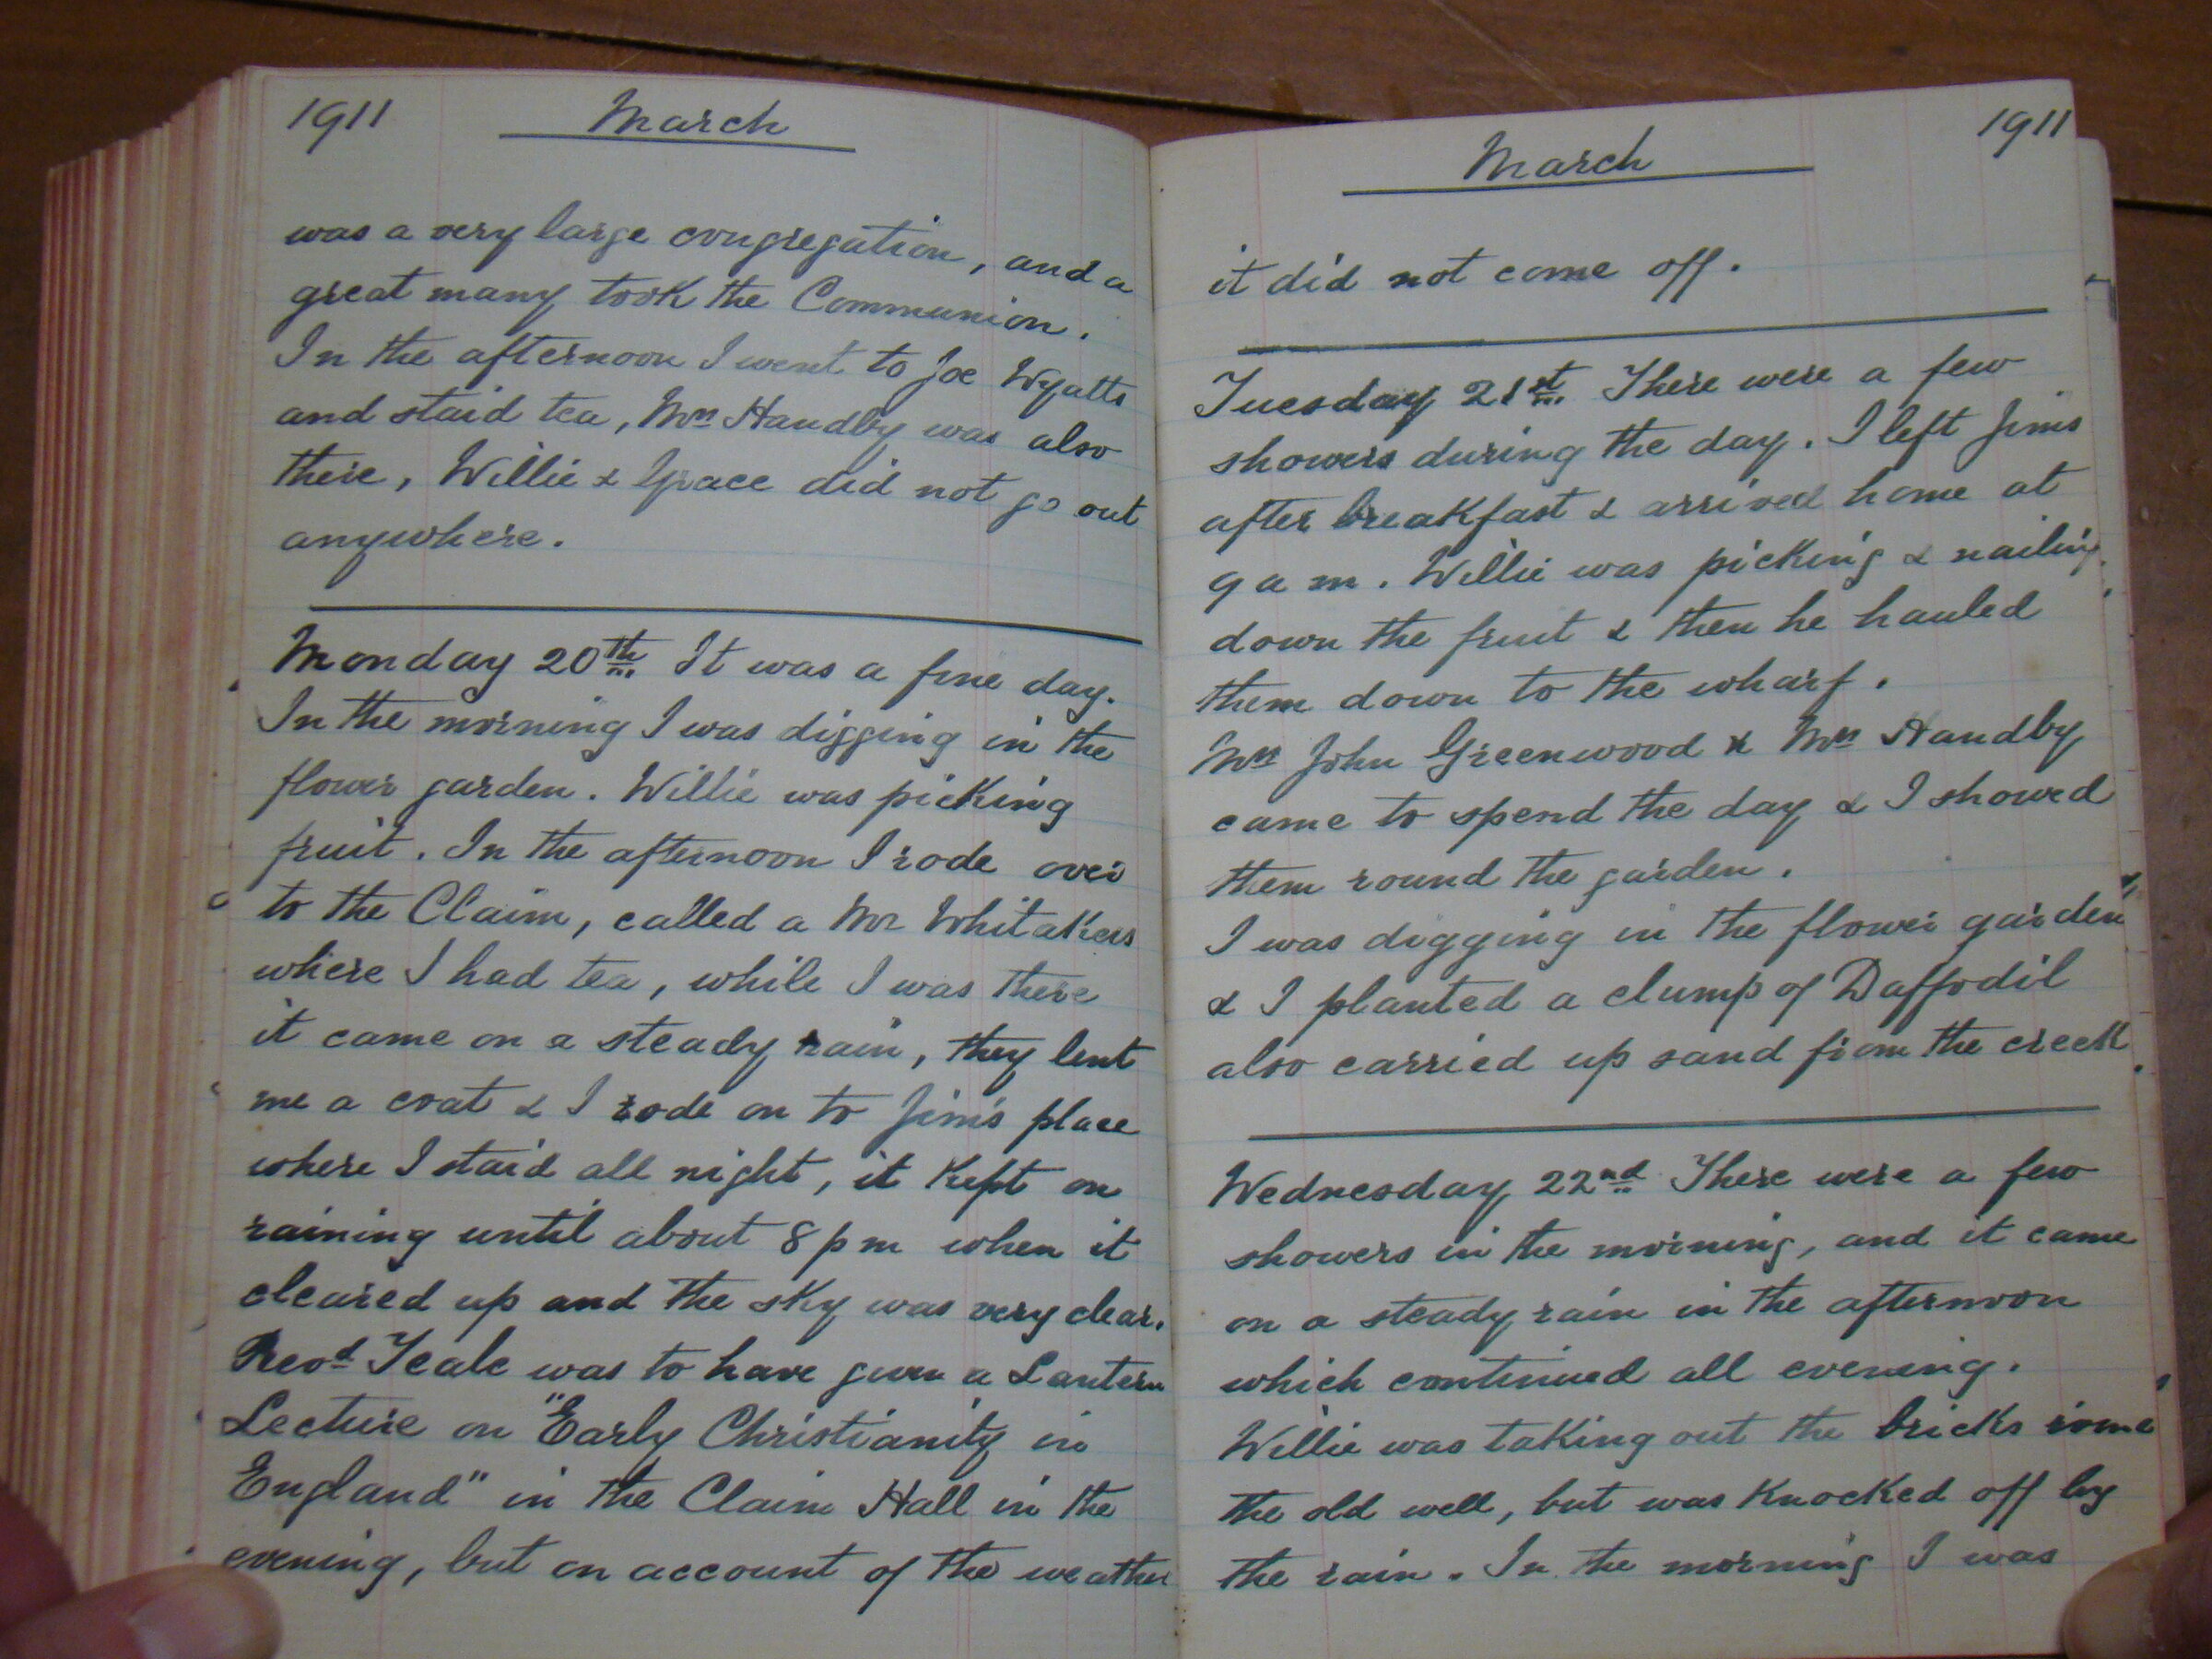 1911 March
was a very large congregation, and a
great many took the Communion.
In the afternoon I went to Joe Wyatts
and staid tea, Mrs Handby was also
there, Willie & Grace did not go out
anywhere.
Monday 20th It was a fine day.
In the morning I was digging in the
flower garden. Willie was picking
fruit. In the afternoon I rode over
to the Claim, called a Mr Whitakers
where I had tea, while I was there
it came on a steady rain, they lent
me a coat & I rode on to Jim's place
where I staid all night, it kept on
raining until about 8 pm when it
cleared up and the sky was very clear.
Revd Teale was to have given a Lantern
Lecture on "Early Christianity in
England" in the Claim Hall in the
evening, but on account of the weather
March 1911
it did not come off.
Tuesday 21st There were a few
showers during the day. I left Jims
after breakfast & arrived home at
9 a m. Willie was picking & nailing
down the fruit & then he hauled
them down to the wharf.
Mrs John Greenwood & Mrs Handby
came to spend the day & I showed
them round the garden.
I was digging in the flower garden
& I planted a clump of Daffodil
also carried up sand from the creek
Wednesday 22nd There were a few
showers in the morning, and it came
on a steady rain in the afternoon
which continued all evening.
Willie was taking out the bricks
the old well, but was knocked off by
the rain. In the morning I was